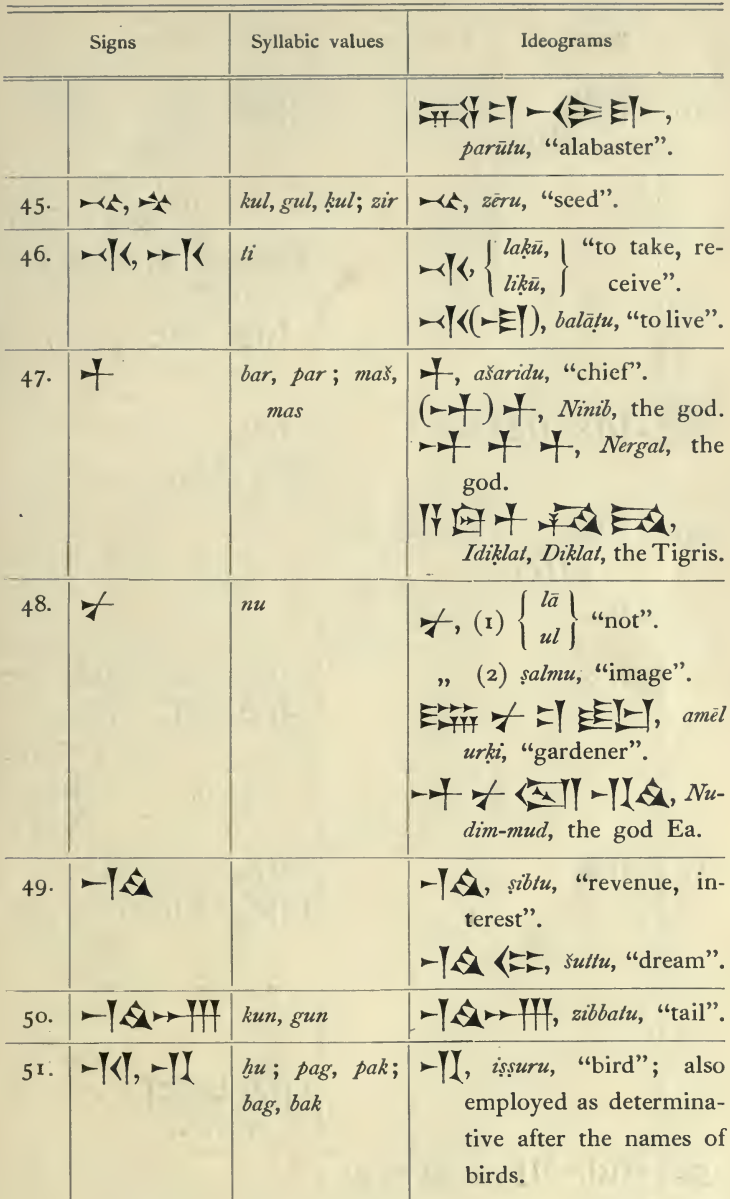 Signs | Syllabic values | Ideograms
parūtu, “alabaster”.
45. 𒆰, 𒆰 | kul, gul, ḳul; zir | 𒆰, zēru, “seed”.
46. 𒋾, 𒋾 | ti | 𒋾, { laḳū, liḳū, } “to take, re-
ceive”.
𒋾(𒆷), balāṭu, “to live”.
47. 𒈦 | bar, par; maš, | 𒈦, ašaridu, “chief”.
mas | (𒀭) 𒈦, Ninib, the god.
𒀭 𒈦 𒈦, Nergal, the
god.
𒀀 𒇉 𒈦 𒄘 𒃼,
Idiḳlat, Diḳlat, the Tigris.
48. 𒉡 | nu | 𒉡, (1) { lā ul } “not”.
„ (2) ṣalmu, “image”.
𒇽 𒉡 𒄑 𒊬, amēl
urḳi, “gardener”.
𒀭 𒉡 𒁶 𒄷𒄭, Nu-
dim-mud, the god Ea.
49. 𒈧 | 𒈧, ṣibtu, “revenue, in-
terest”.
𒈧 𒈪, šuttu, “dream”.
50. 𒆲 | kun, gun | 𒆲, zibbatu, “tail”.
51. 𒄷, 𒄷 | ḫu; pag, pak; | 𒄷, iṣṣuru, “bird”; also
bag, bak | employed as determina-
tive after the names of
birds.